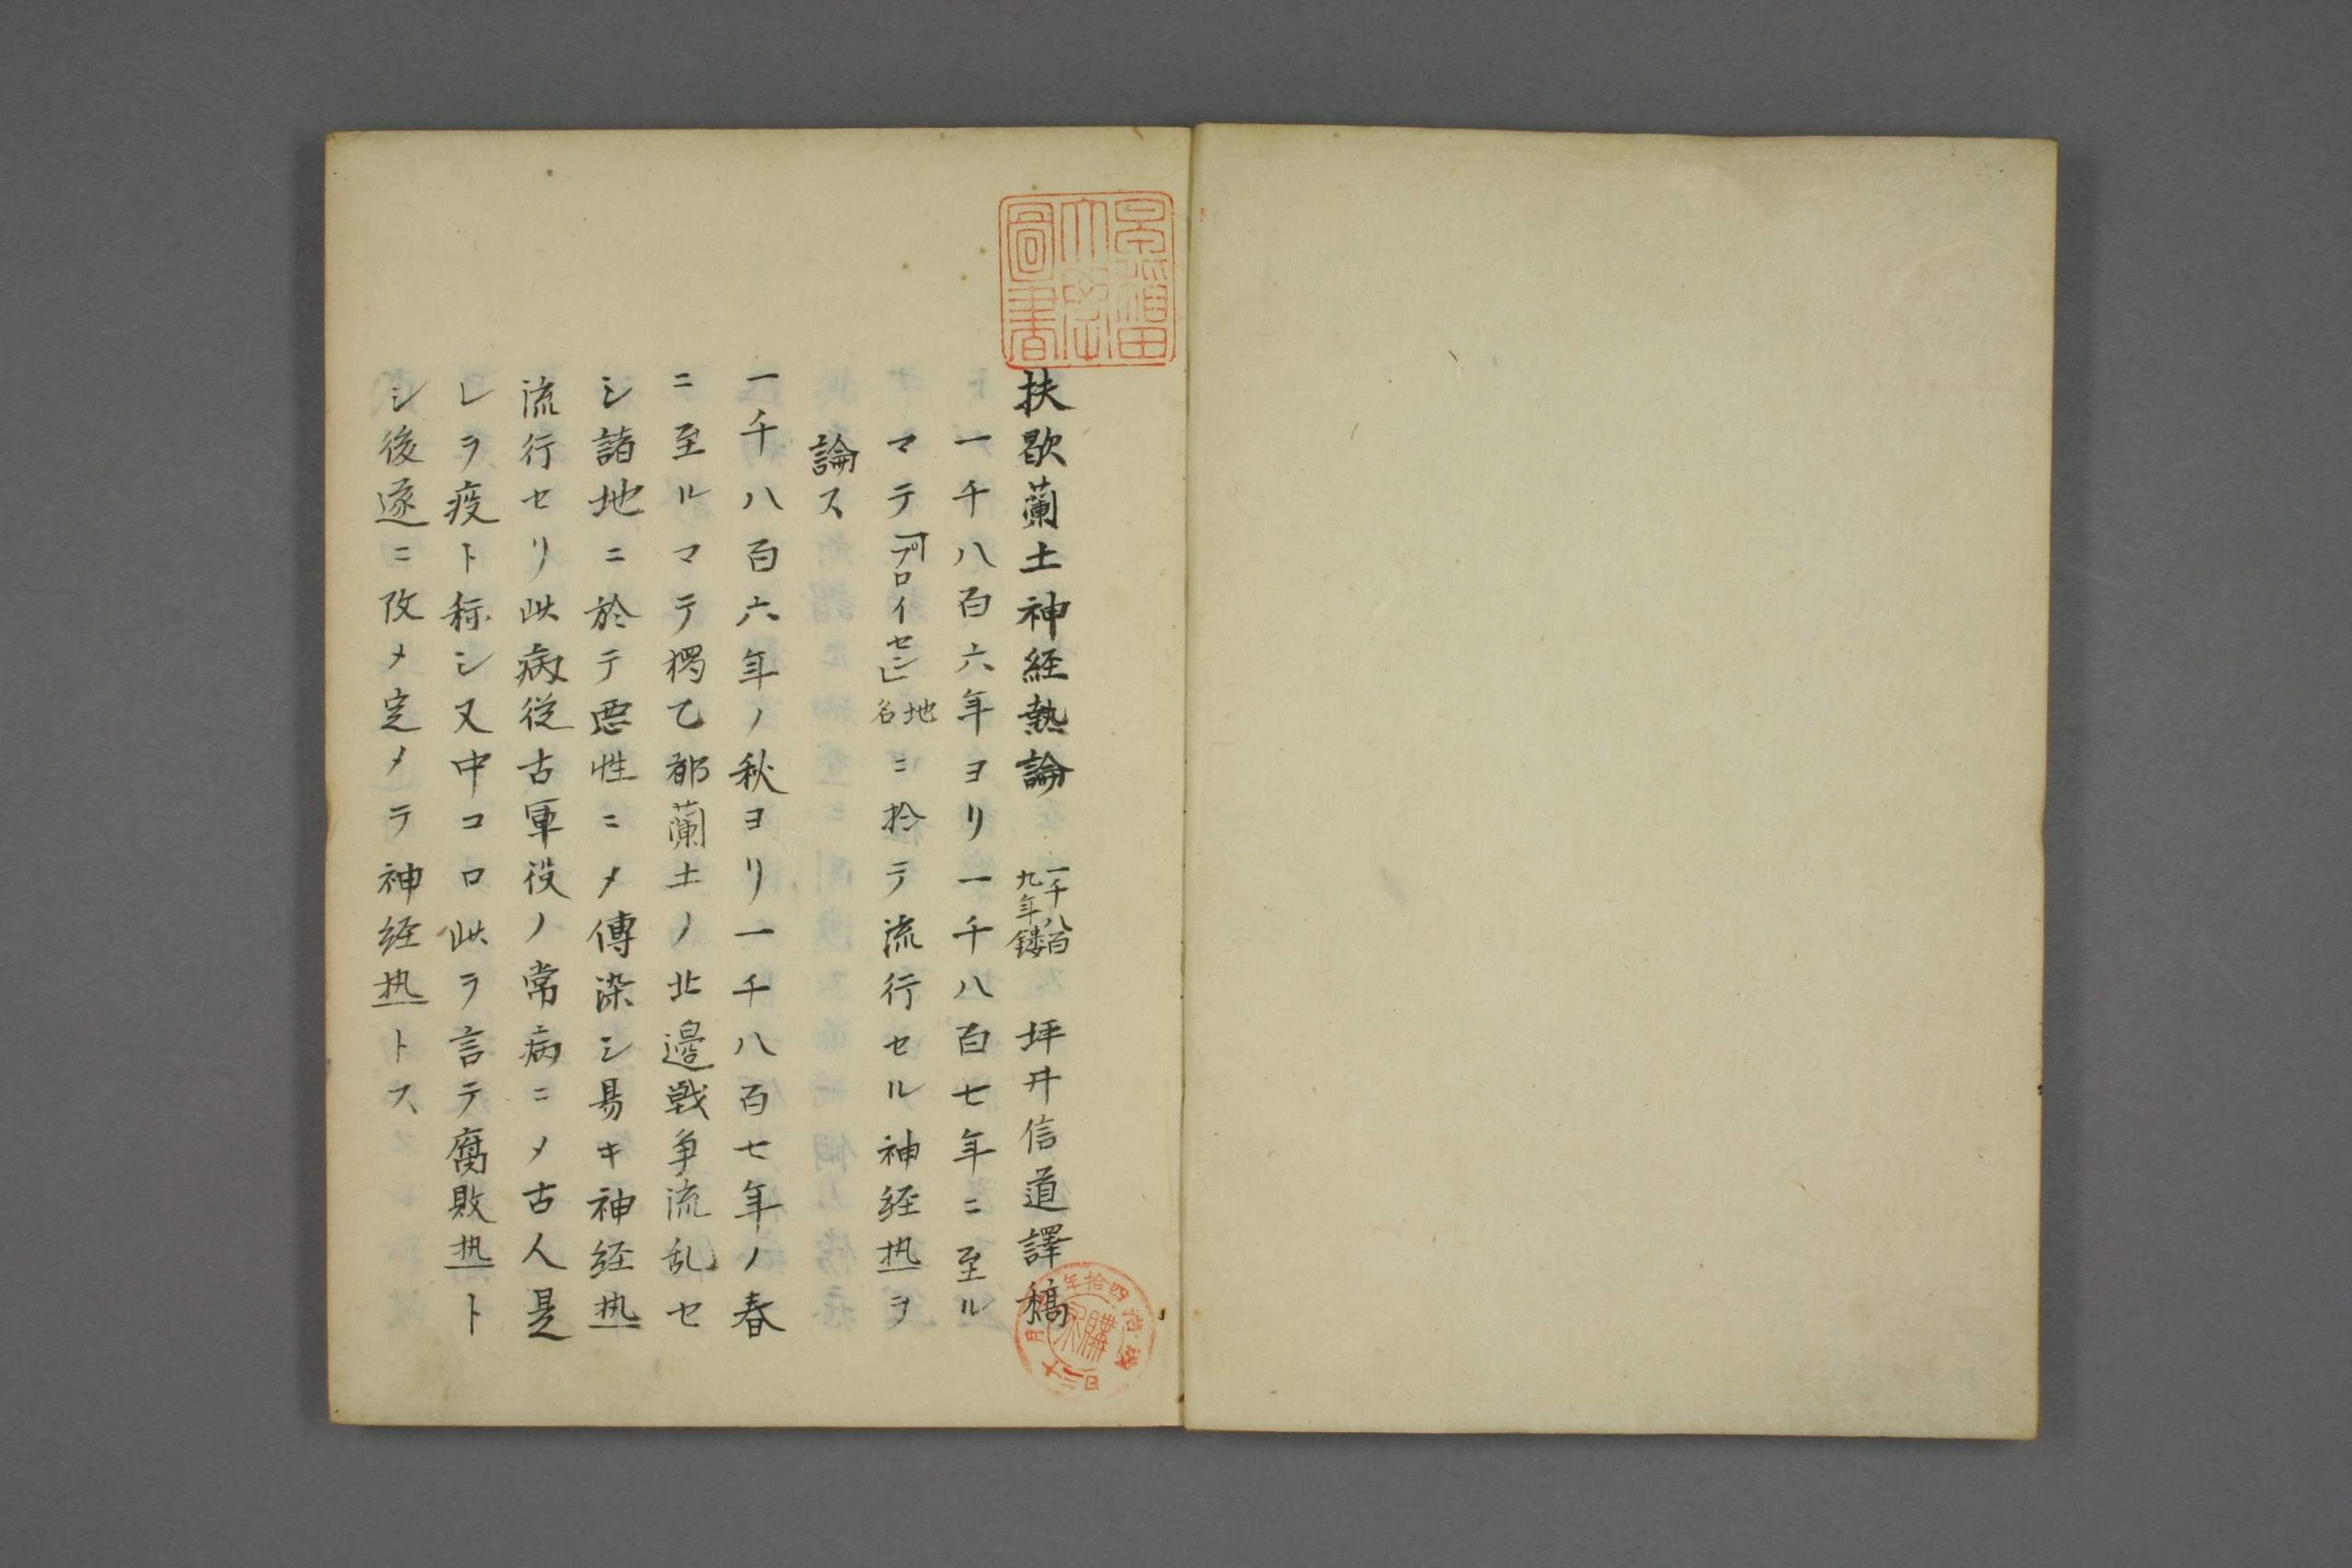 扶歇蘭土神経熱論 一千八百九年鏤 坪井信道譯稿
一千八百六年ヨリ一千八百七年ニ至ル
マテ「プロイセン」地名ニ於テ流行セル神経热ヲ
論ス
一千八百六年ノ秋ヨリ一千八百七年ノ春
ニ至ルマテ獨乙都蘭土ノ北邉戦争流乱セ
シ諸地ニ於テ悪性ニメ傳染シ易キ神経热
流行セリ此病従古軍役ノ常病ニメ古人是
レヲ疫ト称シ又中コロ此ヲ言テ腐敗热ト
シ後遂ニ改メ定メテ神経热トス
早稲田大學圖書
明治四拾年 月 日 購求